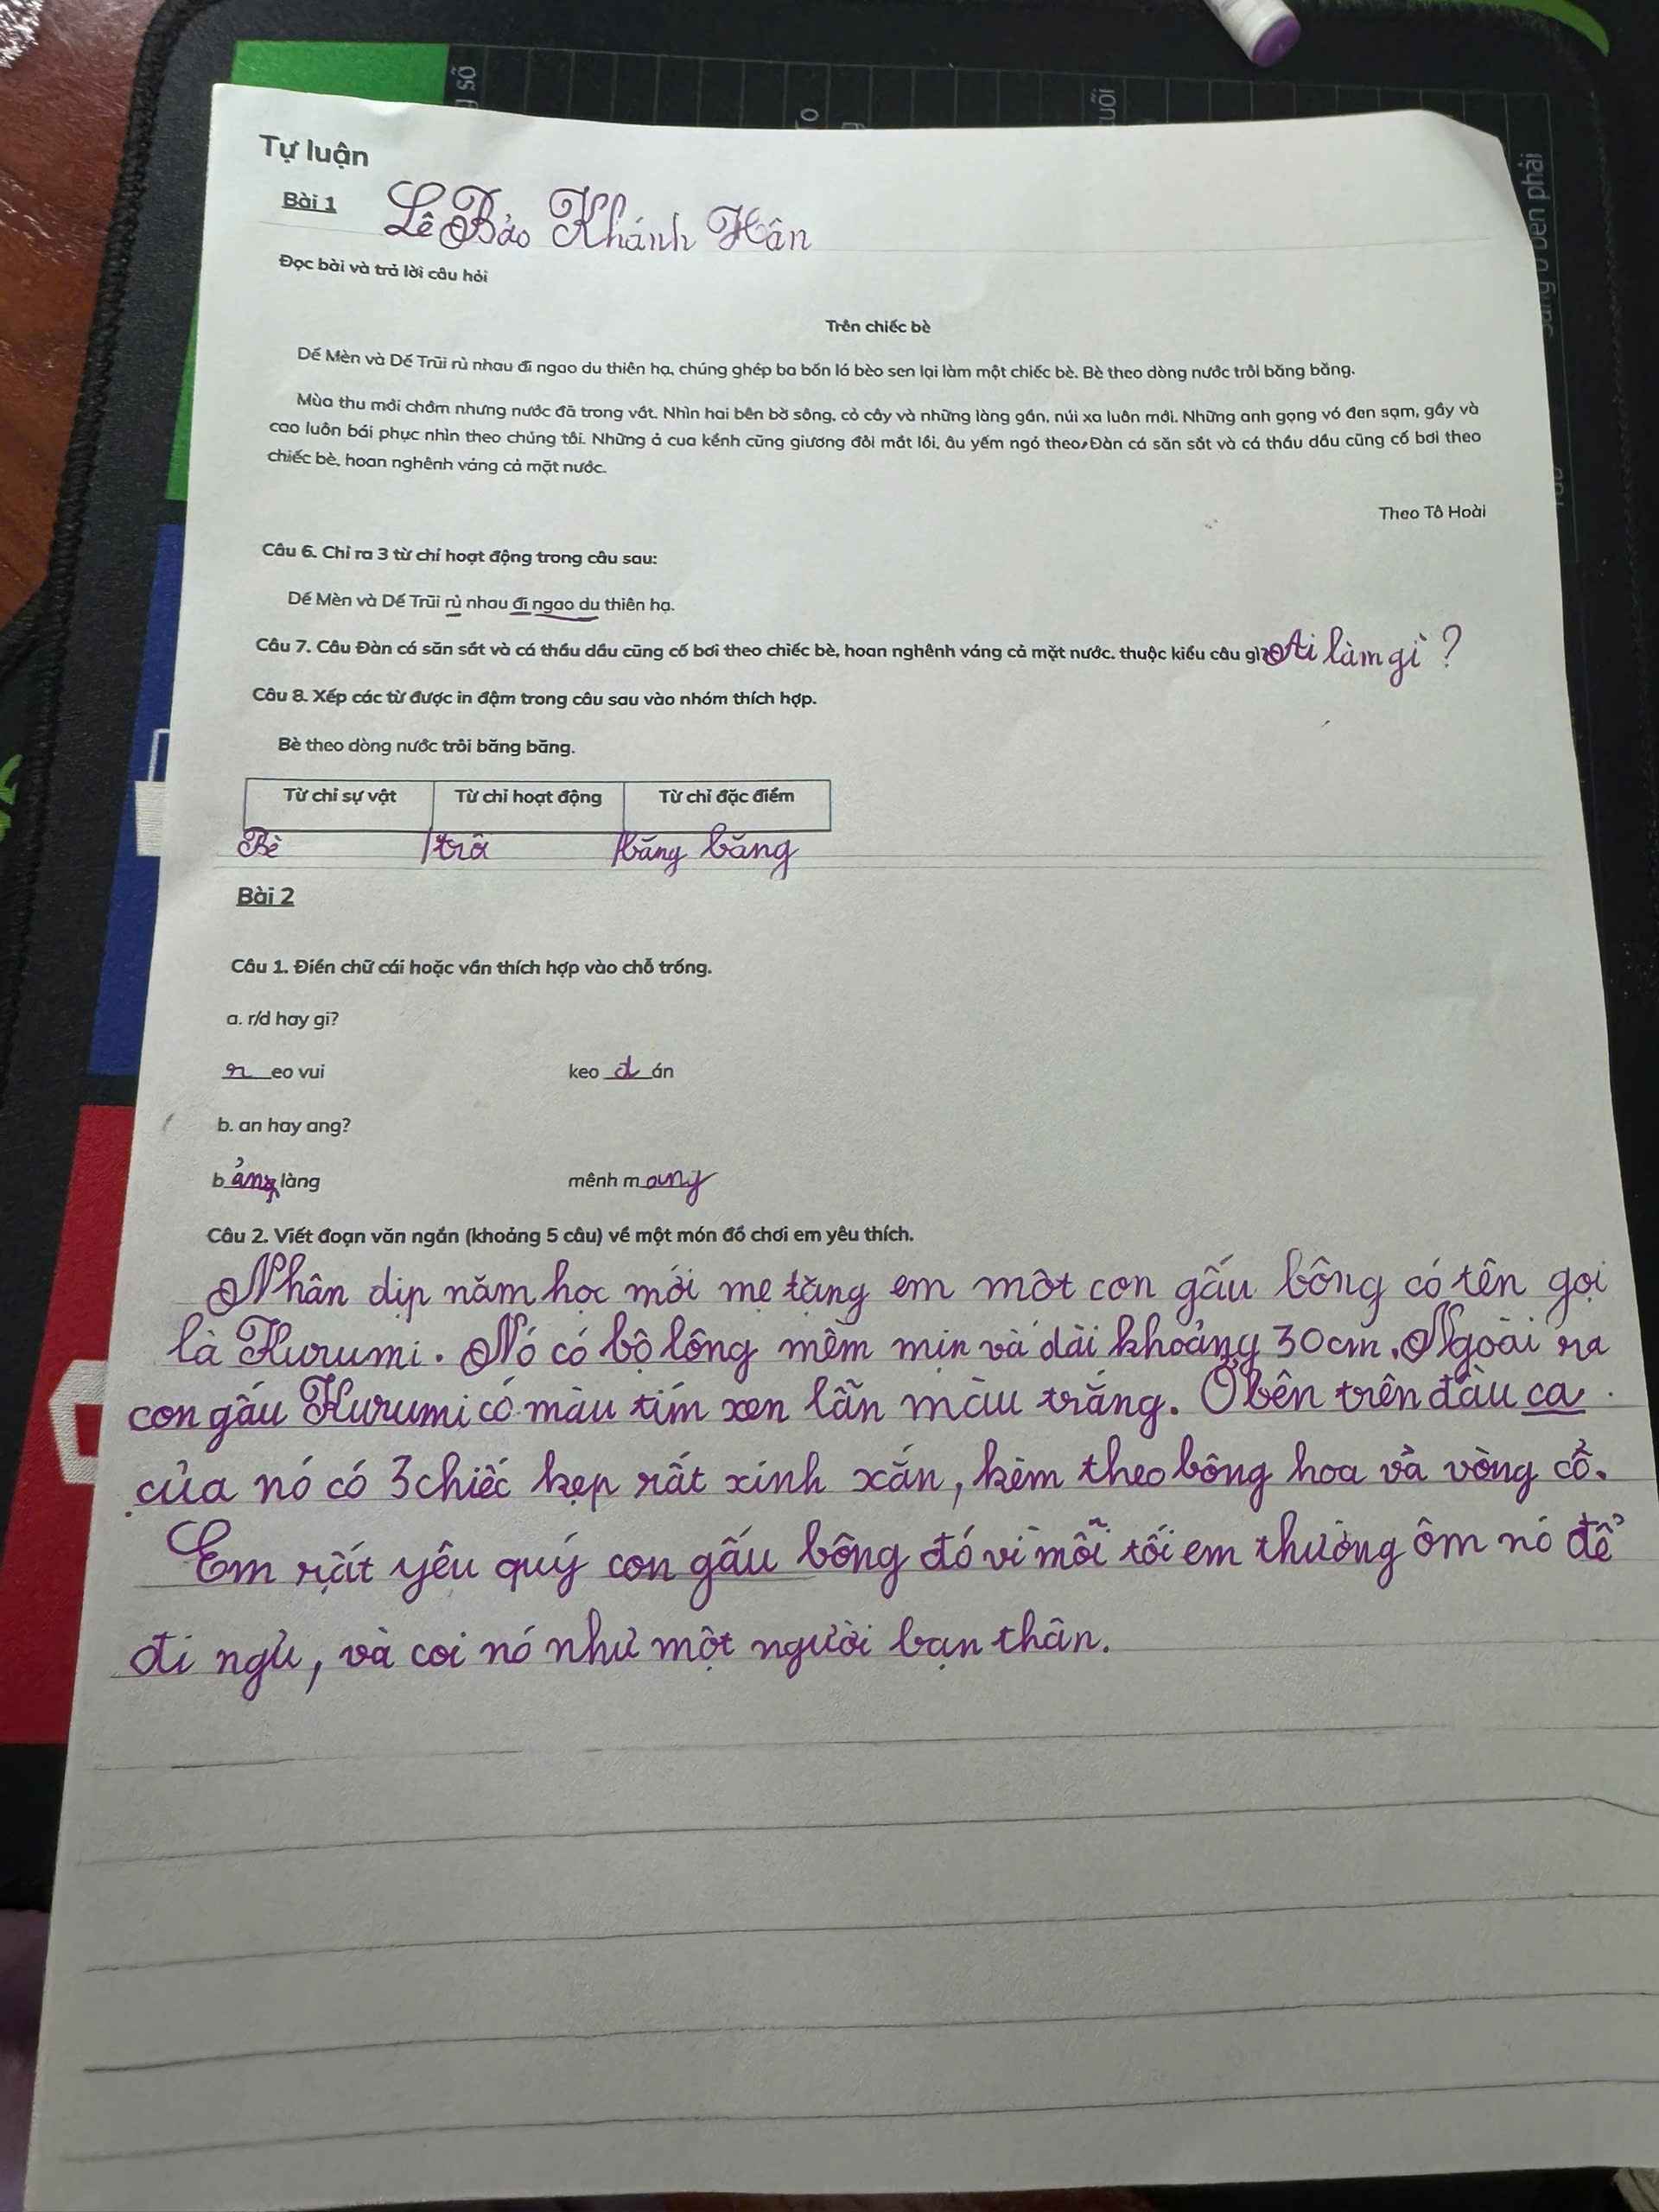 số
uổi
ben phải
Tự luận
Bài 1 Lê Bảo Khánh Hân
Đọc bài và trả lời câu hỏi
Trên chiếc bè
Dế Mèn và Dế Trũi rủ nhau đi ngao du thiên hạ, chúng ghép ba bốn lá bèo sen lại làm một chiếc bè. Bè theo dòng nước trôi băng băng.
Mùa thu mới chớm nhưng nước đã trong vắt. Nhìn hai bên bờ sông, cỏ cây và những làng gần, núi xa luôn mới. Những anh gọng vó đen sạm, gầy và
cao luôn bái phục nhìn theo chúng tôi. Những ả cua kềnh cũng giương đôi mắt lồi, âu yếm ngó theo. Đàn cá săn sắt và cá thầu dầu cũng cố bơi theo
chiếc bè, hoan nghênh váng cả mặt nước.
Theo Tô Hoài
Câu 6. Chỉ ra 3 từ chỉ hoạt động trong câu sau:
Dế Mèn và Dế Trũi rủ nhau đi ngao du thiên hạ.
Câu 7. Câu Đàn cá săn sắt và cá thầu dầu cũng cố bơi theo chiếc bè, hoan nghênh váng cả mặt nước. thuộc kiểu câu gì? Ai làm gì?
Câu 8. Xếp các từ được in đậm trong câu sau vào nhóm thích hợp.
Bè theo dòng nước trôi băng băng.
Từ chỉ sự vật Từ chỉ hoạt động Từ chỉ đặc điểm
Bè trôi băng băng
Bài 2
Câu 1. Điền chữ cái hoặc vần thích hợp vào chỗ trống.
a. r/d hay gi?
r eo vui keo d án
b. an hay ang?
b ảng làng mênh m ang
Câu 2. Viết đoạn văn ngắn (khoảng 5 câu) về một món đồ chơi em yêu thích.
Nhân dịp năm học mới mẹ tặng em một con gấu bông có tên gọi
là Kurumi. Nó có bộ lông mềm mịn và dài khoảng 30cm. Ngoài ra
con gấu Kurumi có màu tím xen lẫn màu trắng. Ở bên trên đầu ca
của nó có 3 chiếc kẹp rất xinh xắn, kèm theo bông hoa và vòng cổ.
Em rất yêu quý con gấu bông đó vì mỗi tối em thường ôm nó để
đi ngủ, và coi nó như một người bạn thân.